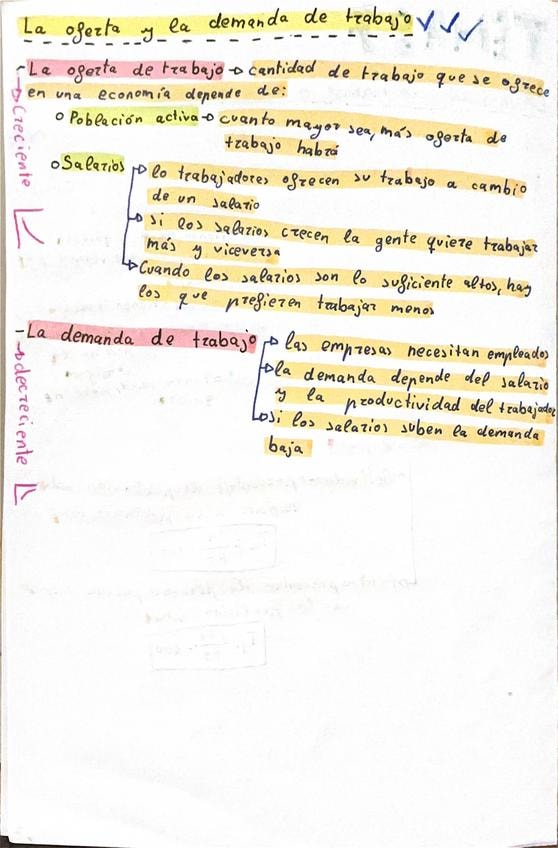 La oferta y la demanda de trabajo ✓✓✓
- La oferta de trabajo → cantidad de trabajo que se ofrece
en una economía depende de:
→ Creciente
o Población activa → cuanto mayor sea, más oferta de
trabajo habrá
o Salarios
→ lo trabajadores ofrecen su trabajo a cambio
de un salario
→ si los salarios crecen la gente quiere trabajar
más y viceversa
→ Cuando los salarios son lo suficiente altos, hay
los que prefieren trabajar menos
- La demanda de trabajo
→ decreciente
→ las empresas necesitan empleados
→ la demanda depende del salario
y la productividad del trabajador
→ si los salarios suben la demanda
baja